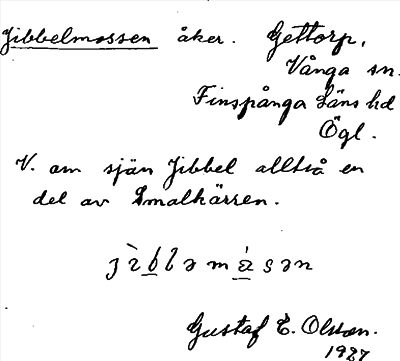 Jibbelmossen åker. Gettorp,
Vånga sn.
Finspånga Läns hd
Ögl.
V. om sjön Jibbel alltså en
del av Smalkärren.
Gustaf E. Olsson.
1927